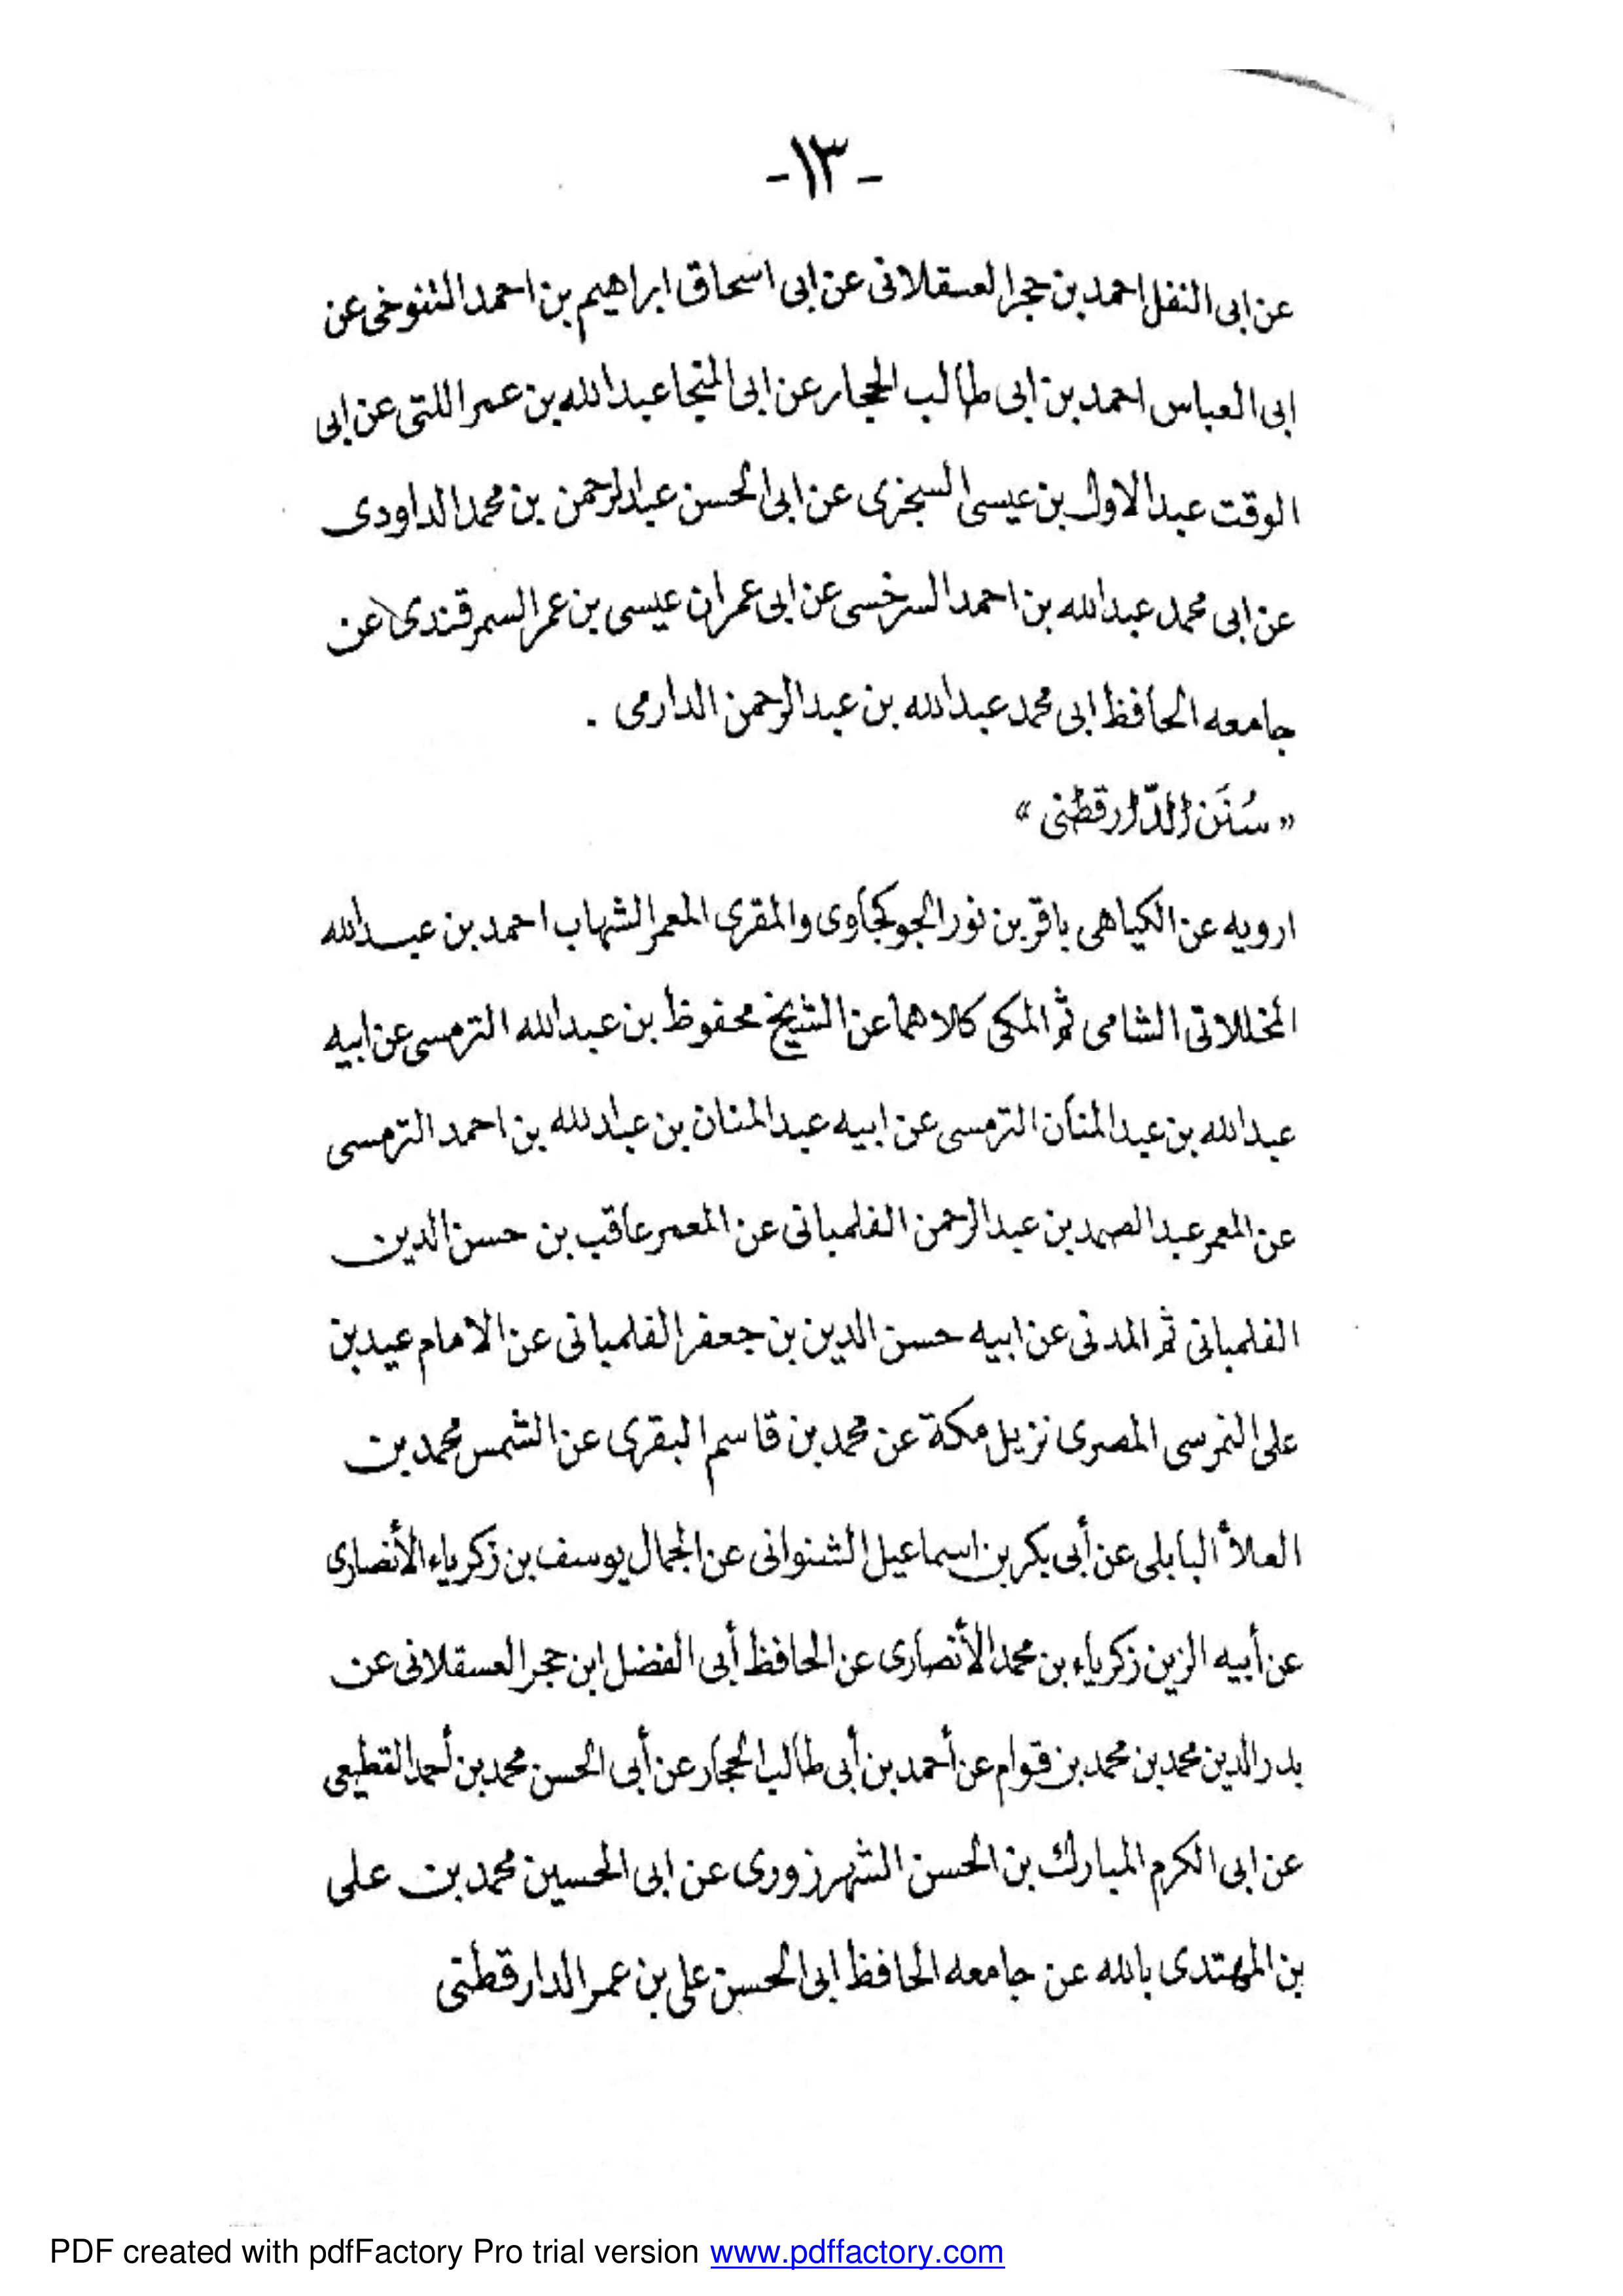 -١٣-
عن ابى النفل احمد بن حجر العسقلانى عن ابى اسحاق ابراهيم بن احمد التنوخى عن
ابى العباس احمد بن ابى طالب الحجار عن ابى المنجا عبد الله بن عمر اللتى عن ابى
الوقت عبد الاول بن عيسى السجزى عن ابى الحسن عبد الرحمن بن محمد الداودى
عن ابى محمد عبد الله بن احمد السرخسى عن ابى عمران عيسى بن عمر السمرقندى عن
جامعه الحافظ ابى محمد عبد الله بن عبد الرحمن الدارمى .
« سُنَن الدّارقطنى »
ارويه عن الكياهى باقر بن نور الجوكجاوى والمقرى المعمر الشهاب احمد بن عبد الله
المخللاتى الشامى ثم المكى كلاهما عن الشيخ محفوظ بن عبد الله الترمسى عن ابيه
عبد الله بن عبد المنان الترمسى عن ابيه عبد المنان بن عبد الله بن احمد الترمسى
عن المعمر عبد الصمد بن عبد الرحمن الفلمبانى عن المعمر عاقب بن حسن الدين
الفلمبانى ثم المدنى عن ابيه حسن الدين بن جعفر الفلمبانى عن الامام عيد بن
على النمرسى المصرى نزيل مكة عن محمد بن قاسم البقرى عن الشمس محمد بن
العلأ البابلى عن أبى بكر بن اسماعيل الشنوانى عن الجمال يوسف بن زكرياء الأنصارى
عن أبيه الزين زكرياء بن محمد الأنصارى عن الحافظ أبى الفضل ابن حجر العسقلانى عن
بدر الدين محمد بن محمد بن قوام عن أحمد بن أبى طالب الحجار عن أبى الحسن محمد بن أحمد القطيعى
عن ابى الكرم المبارك بن الحسن الشهرزورى عن ابى الحسين محمد بن على
بن المهتدى بالله عن جامعه الحافظ ابى الحسن على بن عمر الدارقطنى
PDF created with pdfFactory Pro trial version www.pdffactory.com